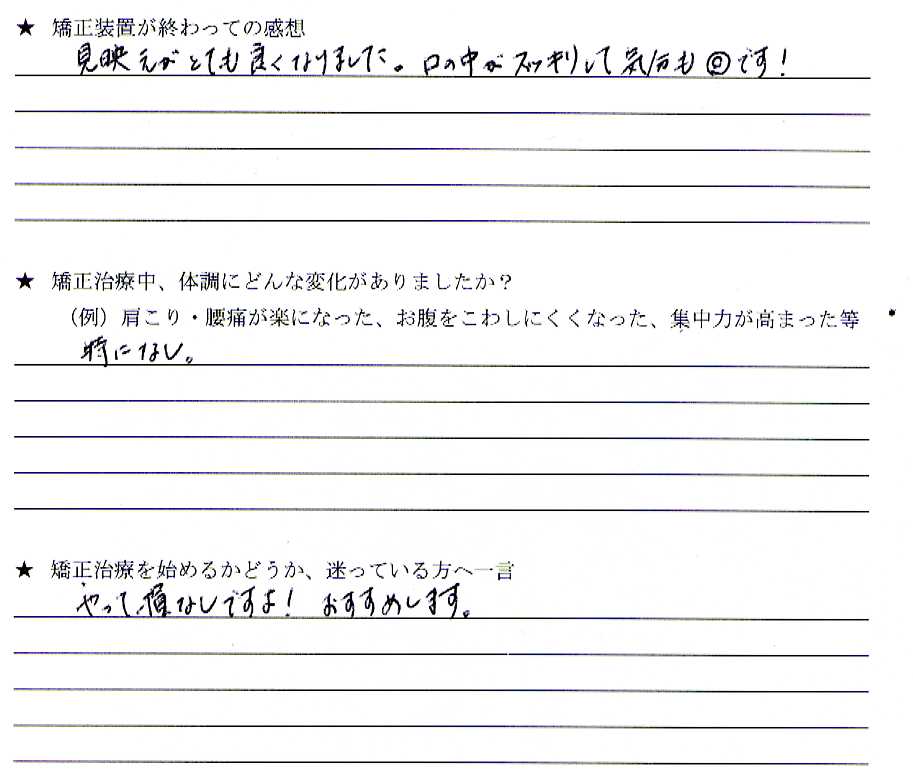 ★ 矯正装置が終わっての感想
見映えがとても良くなりました。口の中がスッキリして気分も◎です！
★ 矯正治療中、体調にどんな変化がありましたか？
（例）肩こり・腰痛が楽になった、お腹をこわしにくくなった、集中力が高まった等
特になし。
★ 矯正治療を始めるかどうか、迷っている方へ一言
やって損なしですよ！ おすすめします。